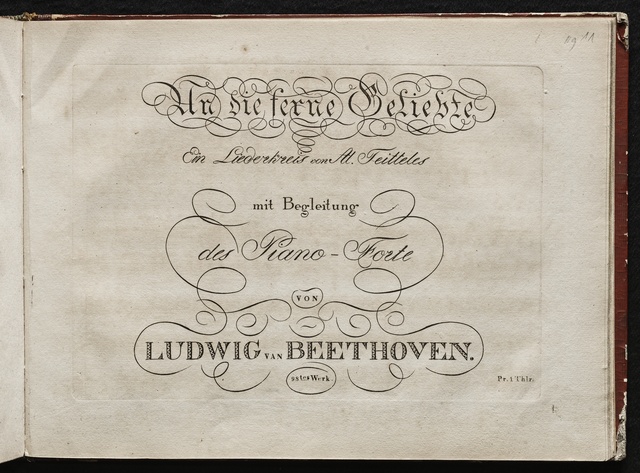 An die ferne Geliebte
Ein Liederkreis von Al. Jeitteles
mit Begleitung
des Piano-Forte
VON
LUDWIG VAN BEETHOVEN.
98tes Werk.
Pr. 1 Thlr.